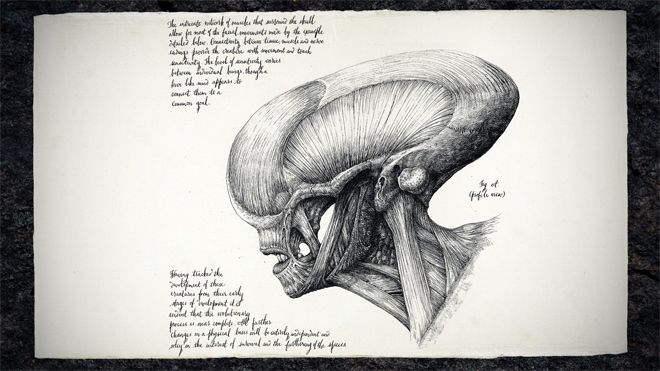 The intricate network of muscles that surround the skull
allow for most of the facial movements made by the example
detailed below. Connectivity between tissue, muscle and nerve
endings provide the creature with movement and touch
sensitivity. The level of sensitivity varies
between individual beings, though a
hive like mind appears to
connect them to a
common goal.
Fig
(profile view)
Having tracked the
development of these
creatures from their early
stages of development it is
evident that this evolutionary
process is near complete. All further
changes on a physical basis will be entirely independent and
the interest of survival and the furthering of the species